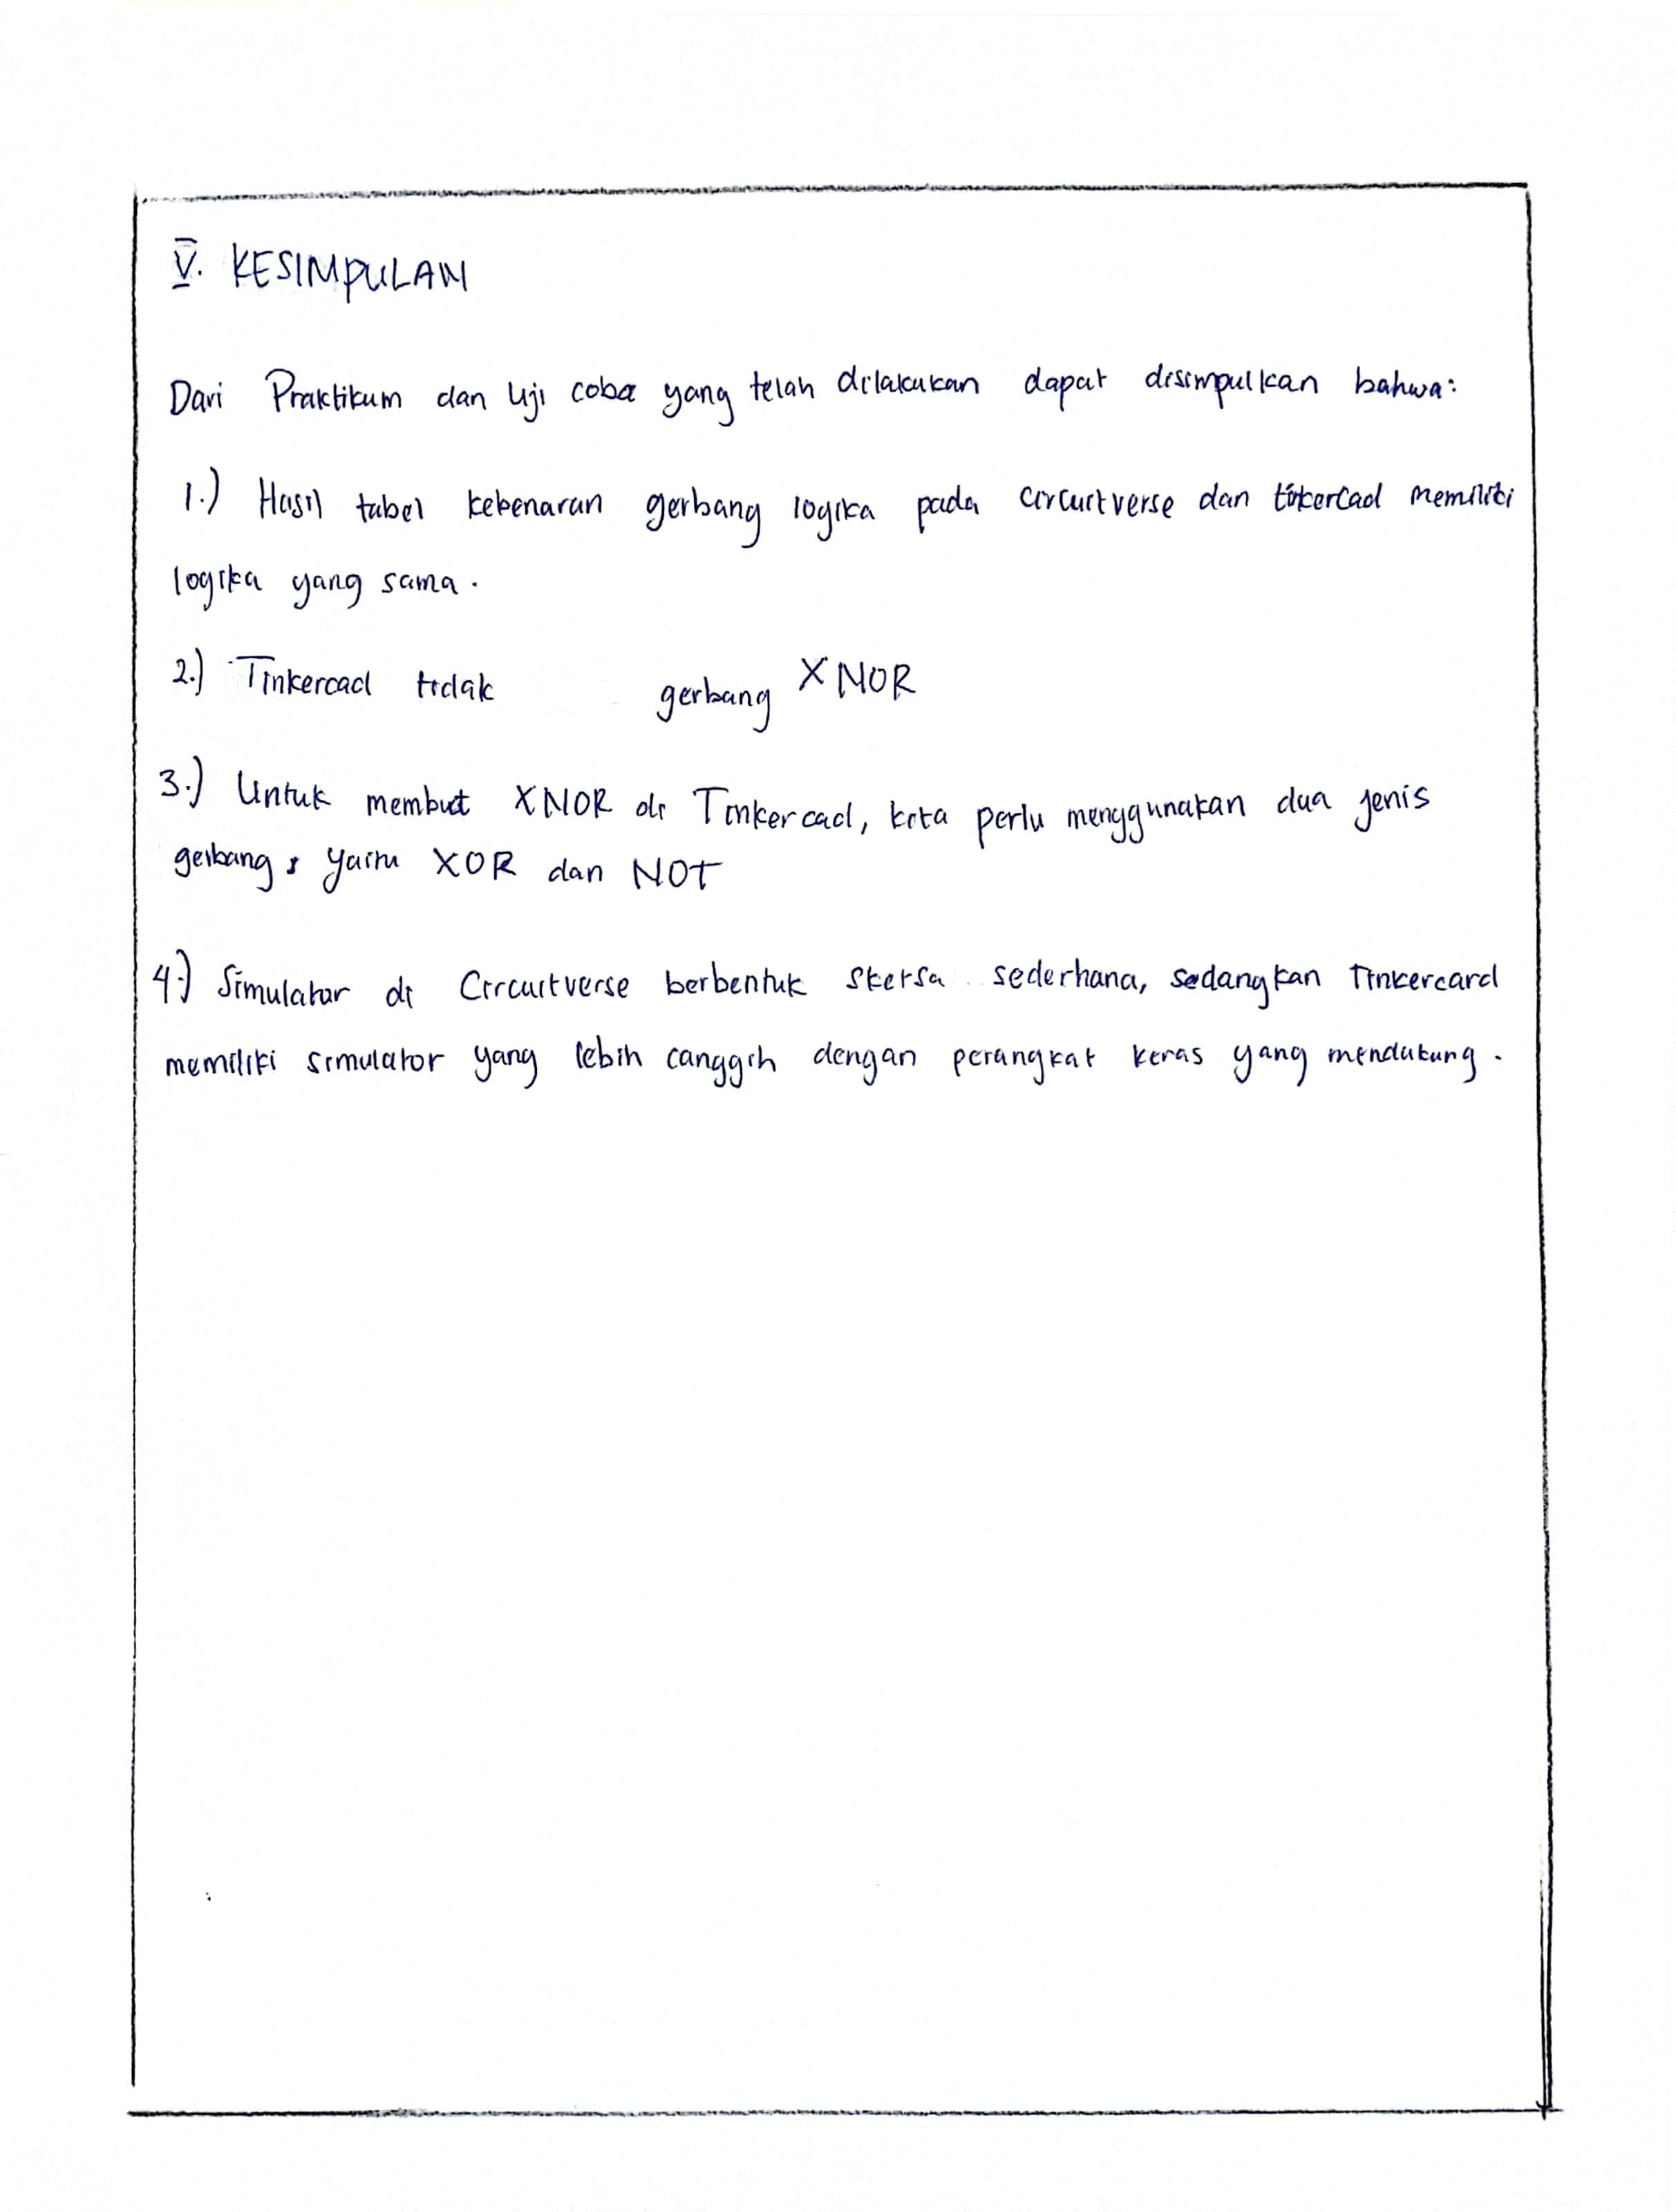 V. KESIMPULAN
Dari Praktikum dan Uji coba yang telah dilakukan dapat disimpulkan bahwa:
1.) Hasil tabel kebenaran gerbang logika pada circuitverse dan tinkercad memiliki
logika yang sama.
2.) Tinkercad tidak gerbang XNOR
3.) Untuk membut XNOR di Tinkercad, kita perlu menggunakan dua jenis
gerbang, yaitu XOR dan NOT
4.) Simulator di Circuitverse berbentuk sketsa sederhana, sedangkan Tinkercard
memiliki simulator yang lebih canggih dengan perangkat keras yang mendukung.